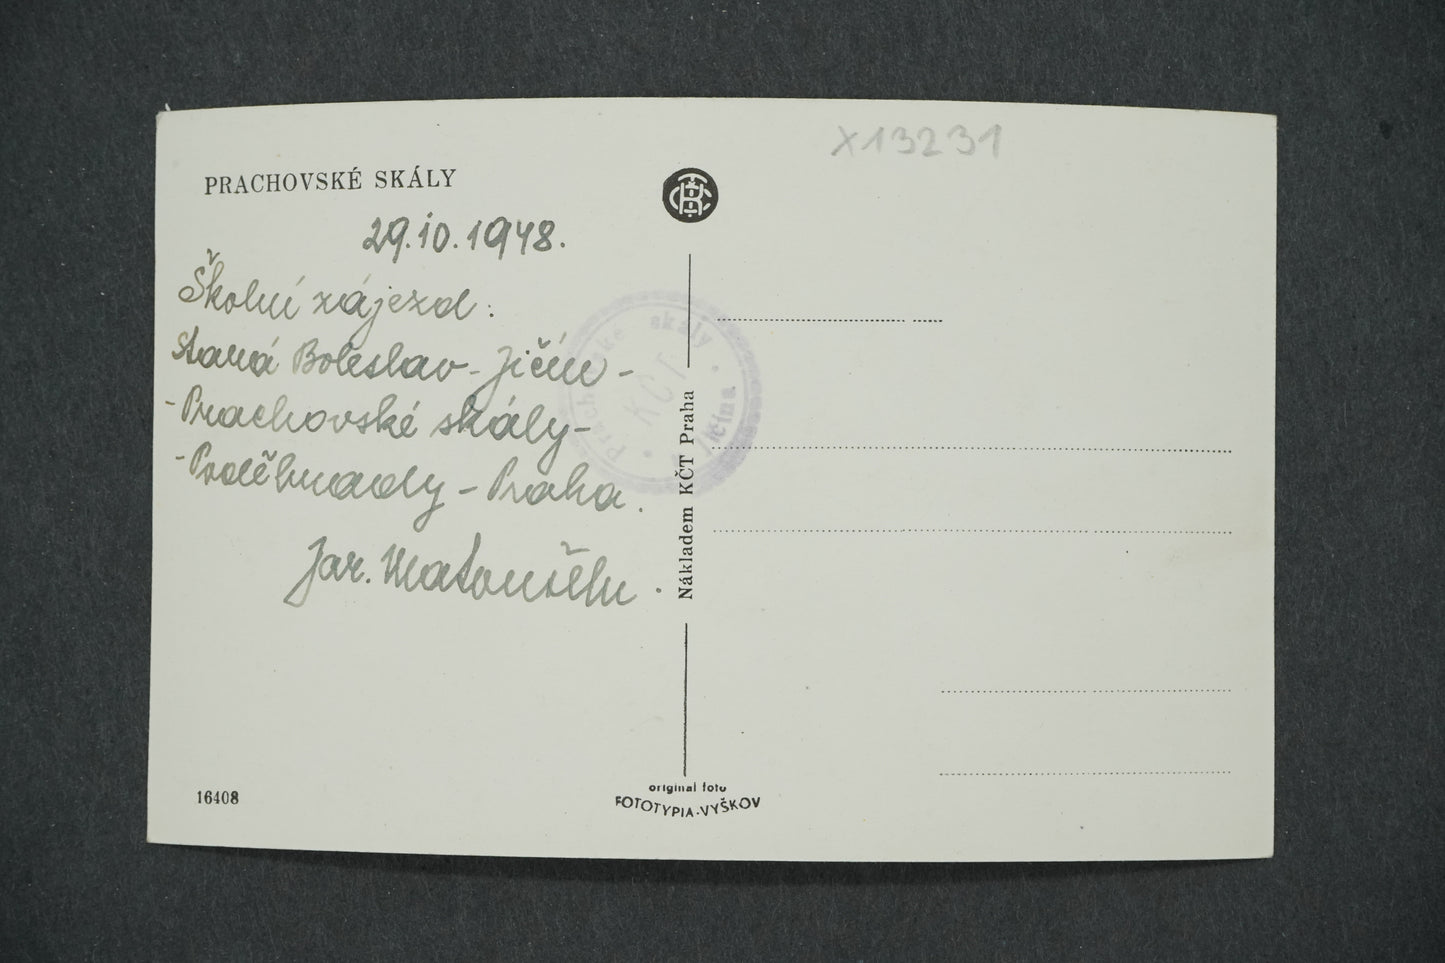 X13231
PRACHOVSKÉ SKÁLY
29.10.1948.
Školní zájezd:
Stará Boleslav - Jičín -
- Prachovské skály -
- Poděbrady - Praha.
Jar.
Prachovské skály
KČT
Jičína
Nákladem KČT Praha
16408
original foto
FOTOTYPIA-VYŠKOV